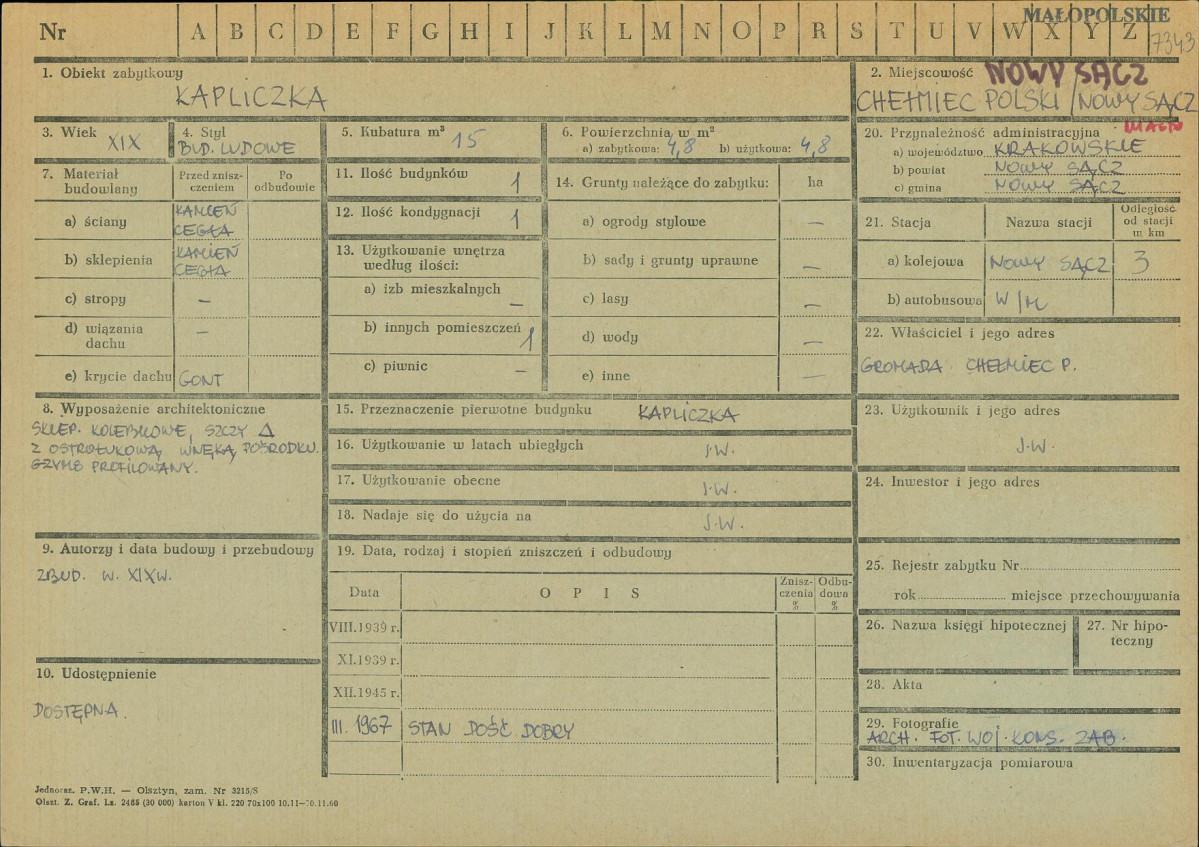 Nr A B C D E F G H I J K L M N O P R S T U V W X Y Z
MAŁOPOLSKIE
7343
1. Obiekt zabytkowy
KAPLICZKA
2. Miejscowość NOWY SĄCZ
CHEŁMIEC POLSKI /NOWY SĄCZ
3. Wiek XIX
4. Styl
BUD. LUDOWE
5. Kubatura m³ 15
6. Powierzchnia w m²
a) zabytkowa: 4,8 b) użytkowa: 4,8
7. Materiał budowlany
Przed zniszczeniem
Po odbudowie
a) ściany KAMIEŃ CEGŁA
b) sklepienia KAMIEŃ CEGŁA
c) stropy –
d) wiązania dachu –
e) krycie dachu GONT
8. Wyposażenie architektoniczne
SKLEP. KOLEBKOWE, SZCZY Δ
Z OSTROŁUKOWĄ WNĘKĄ POŚRODKU.
GZYMS PROFILOWANY.
9. Autorzy i data budowy i przebudowy
ZBUD. W. XIXW.
10. Udostępnienie
DOSTĘPNA.
11. Ilość budynków 1
12. Ilość kondygnacji 1
13. Użytkowanie wnętrza
według ilości:
a) izb mieszkalnych –
b) innych pomieszczeń 1
c) piwnic –
14. Grunty należące do zabytku: ha
a) ogrody stylowe –
b) sady i grunty uprawne –
c) lasy –
d) wody –
e) inne –
15. Przeznaczenie pierwotne budynku KAPLICZKA
16. Użytkowanie w latach ubiegłych J.W.
17. Użytkowanie obecne J.W.
18. Nadaje się do użycia na J.W.
19. Data, rodzaj i stopień zniszczeń i odbudowy
Data O P I S Zniszczenia % Odbudowa %
VIII.1939 r.
XI.1939 r.
XII.1945 r.
III. 1967 STAN DOŚĆ DOBRY
20. Przynależność administracyjna
a) województwo KRAKOWSKIE
b) powiat NOWY SĄCZ
c) gmina NOWY SĄCZ
21. Stacja Nazwa stacji Odległość od stacji w km
a) kolejowa NOWY SĄCZ 3
b) autobusowa W/M
22. Właściciel i jego adres
GROMADA CHEŁMIEC P.
23. Użytkownik i jego adres
J.W.
24. Inwestor i jego adres
25. Rejestr zabytku Nr
rok miejsce przechowywania
26. Nazwa księgi hipotecznej
27. Nr hipoteczny
28. Akta
29. Fotografie
ARCH. FOT. WOJ. KONS. ZAB.
30. Inwentaryzacja pomiarowa
Jednoraz. P.W.H. — Olsztyn, zam. Nr 3215/S
Olszt. Z. Graf. Lz. 2485 (30 000) karton V kl. 220 70x100 10.11—30.11.60